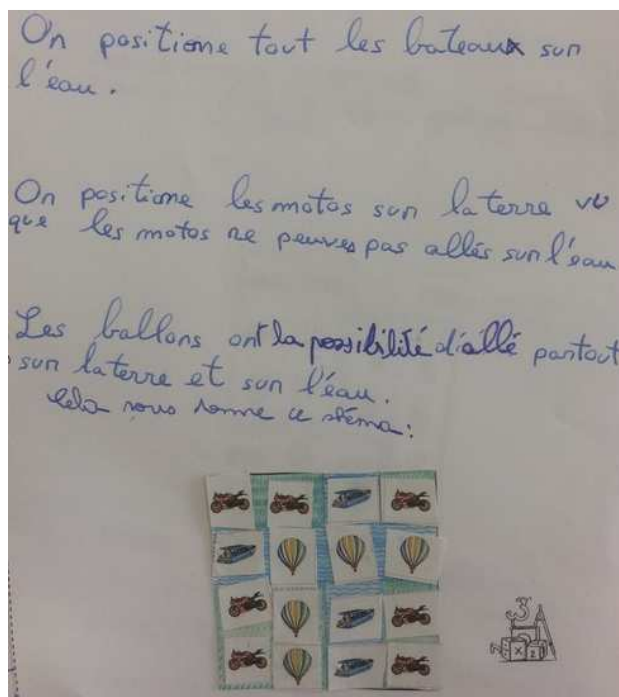 On positione tout les bateaux sur
l'eau.
On positione les motos sur la terre vu
que les motos ne peuves pas allés sur l'eau
Les ballons ont la possibilité d'allé partout
sur la terre et sur l'eau.
Cela nous donne ce stéma :
3
x 2